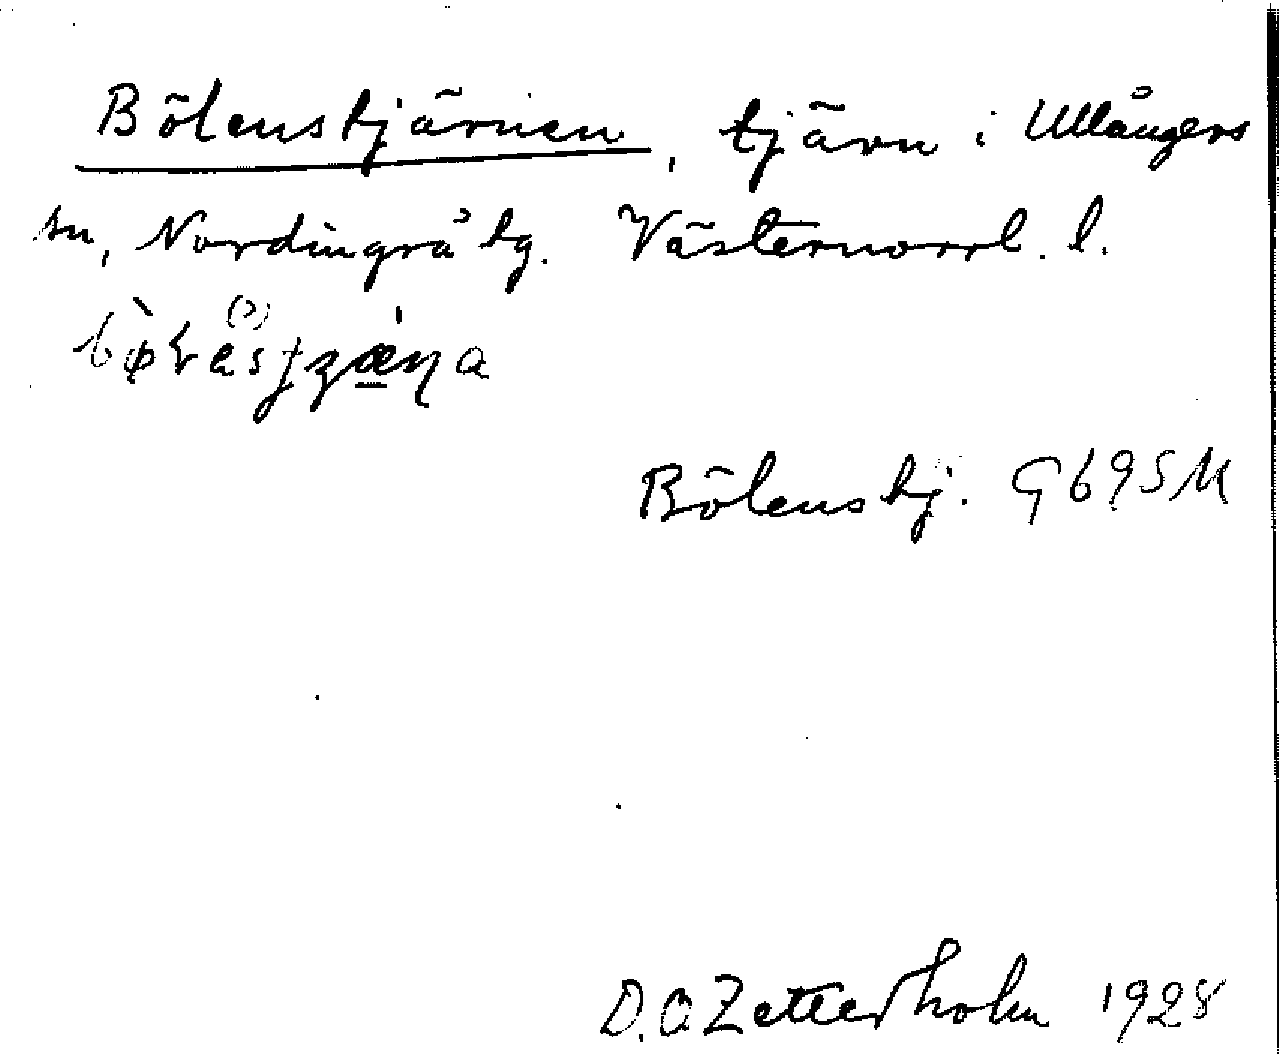 Bölenstjärnen, tjärn i Ullångers
sn, Nordingrå tg. Västernorrl. l.
Bölenstj. G695M
D. O. Zetterholm 1928